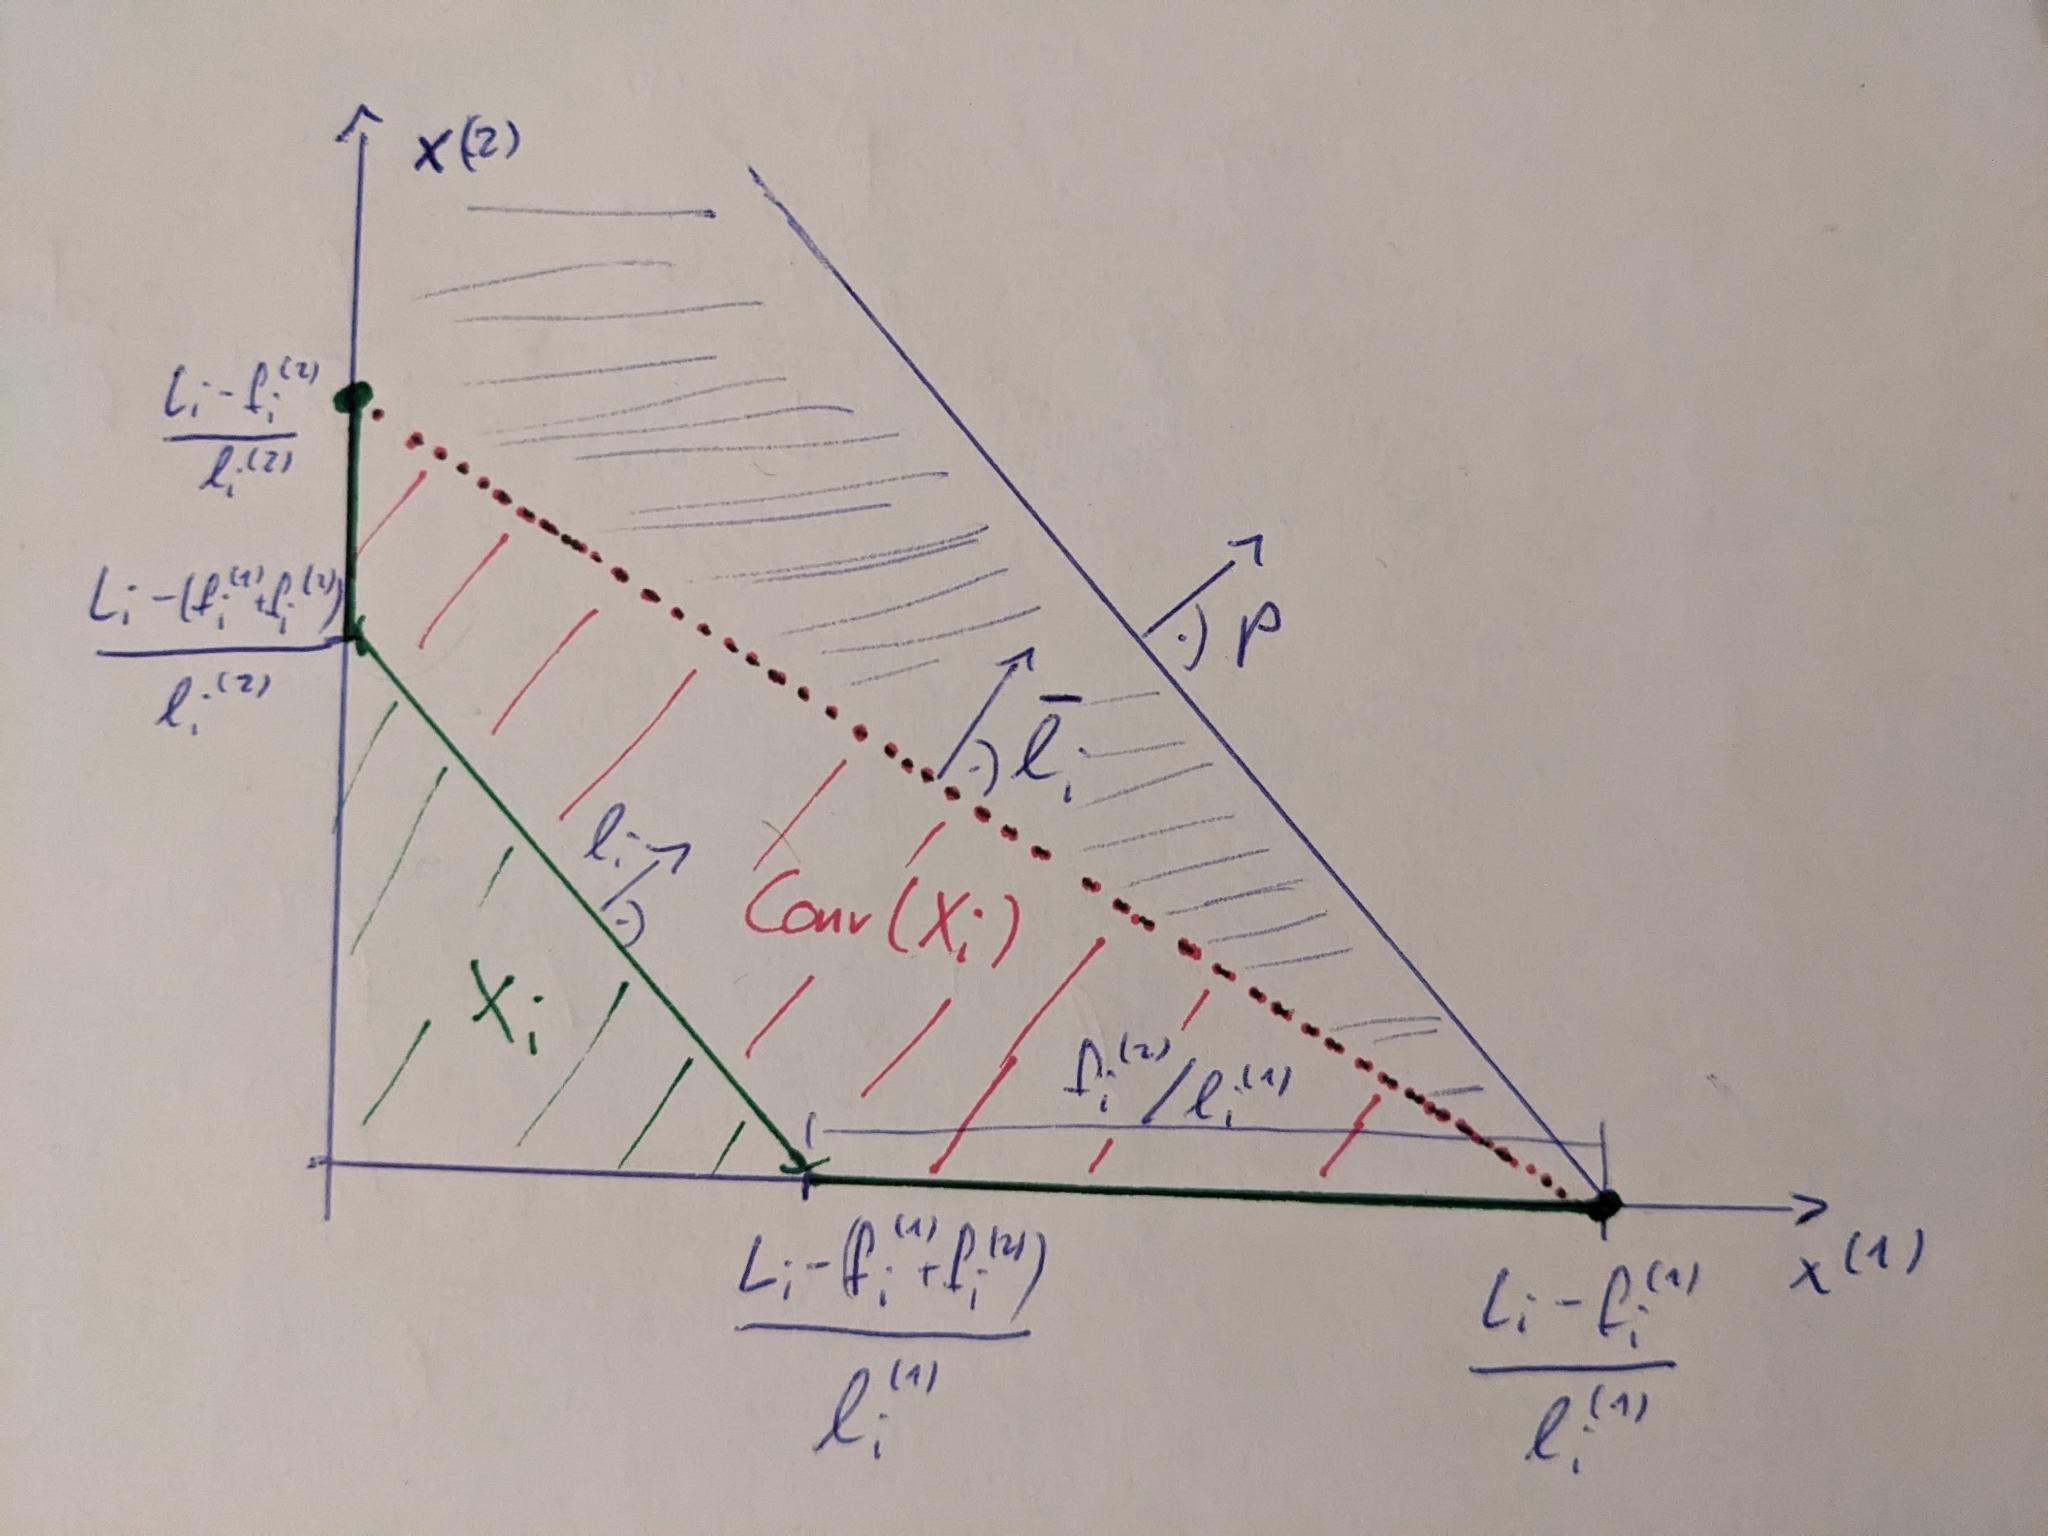 x(2)
L_i - f_i^(2)
l_i^(2)
L_i - (f_i^(1) + f_i^(2))
l_i^(2)
p
l̄_i
l_i
Conv(X_i)
X_i
f_i^(2) / l_i^(1)
L_i - (f_i^(1) + f_i^(2))
l_i^(1)
L_i - f_i^(1)
l_i^(1)
x(1)